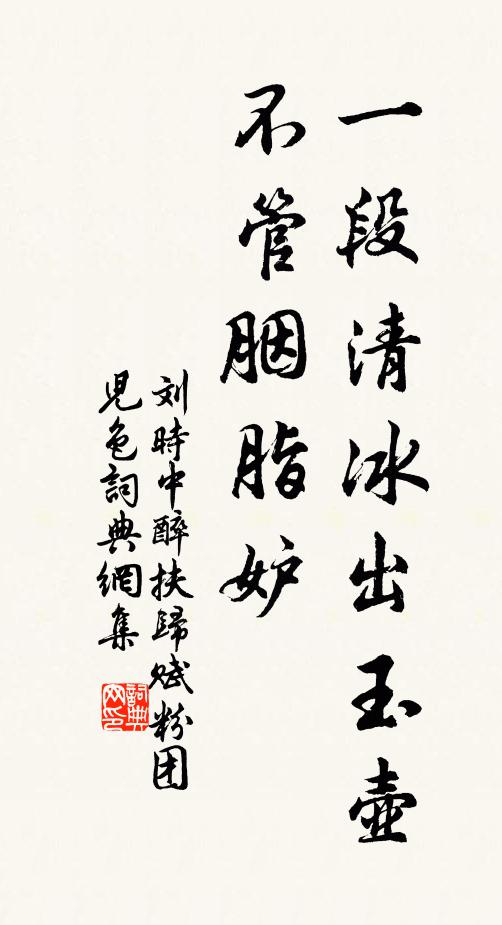 一段清冰出玉壺
不管胭脂妒
刘時中醉扶歸赋粉团
児色詞典網集
詞典网印